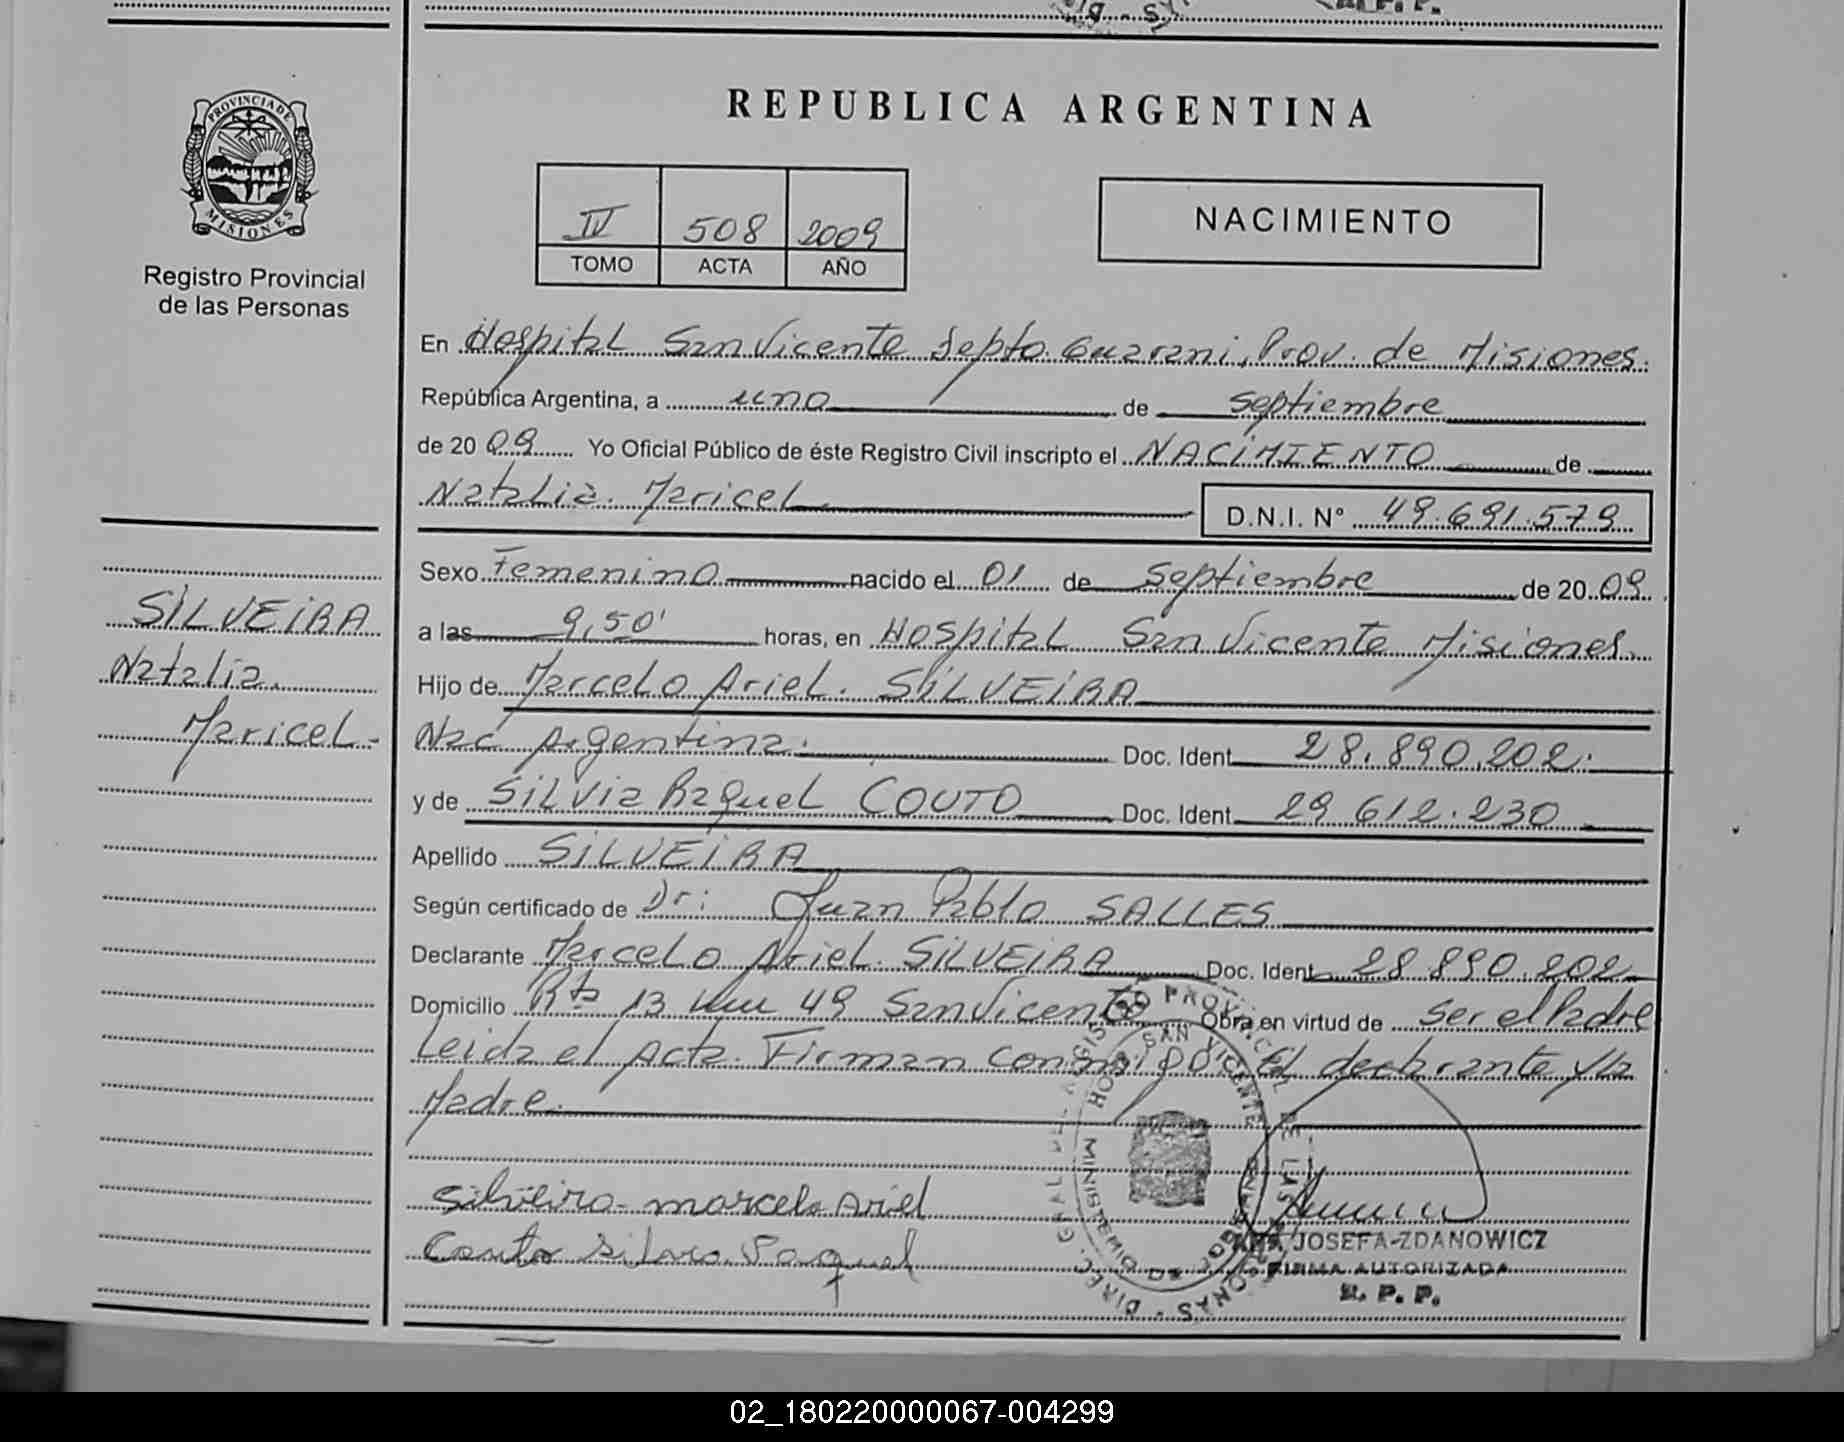 REPUBLICA ARGENTINA
PROVINCIA DE
MISIONES
Registro Provincial
de las Personas
IV 508 2009
TOMO ACTA AÑO
NACIMIENTO
En Hospital San Vicente Depto. Guarani, Prov. de Misiones.
República Argentina, a uno de septiembre
de 2009 Yo Oficial Público de éste Registro Civil inscripto el NACIMIENTO de
Natalia Maricel D.N.I. N° 49.691.579
Sexo Femenino nacido el 01 de septiembre de 2009
SILVEIRA
Natalia
Maricel-
a las 9,50' horas, en Hospital San Vicente Misiones.
Hijo de Marcelo Ariel. SILVEIRA
Nac Argentina. Doc. Ident 28.890.202.
y de SILVIA Raquel COUTO Doc. Ident. 29 612.230
Apellido SILVEIRA
Según certificado de Dr: Juan Pablo SALLES
Declarante Marcelo Ariel. SILVEIRA Doc. Ident. 28 890.202
Domicilio Rta 13 km 49 San Vicente Obra en virtud de ser el Padre
Leida el Acta. Firman con El declarante y la
Madre.
Silveira-marcelo Ariel
Couto Silvia Raquel
HOSP. SAN VICENTE
MINISTERIO DE GOB
JOSEFA-ZDANOWICZ
FIRMA AUTORIZADA
R. P. P.
02_180220000067-004299